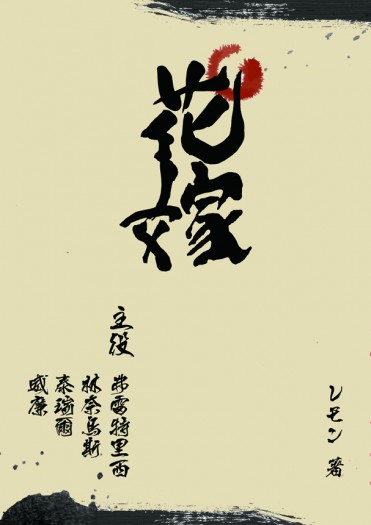 花嫁
主役
弗雷特里西
林奈烏斯
泰瑞爾
威廉
レモン 著